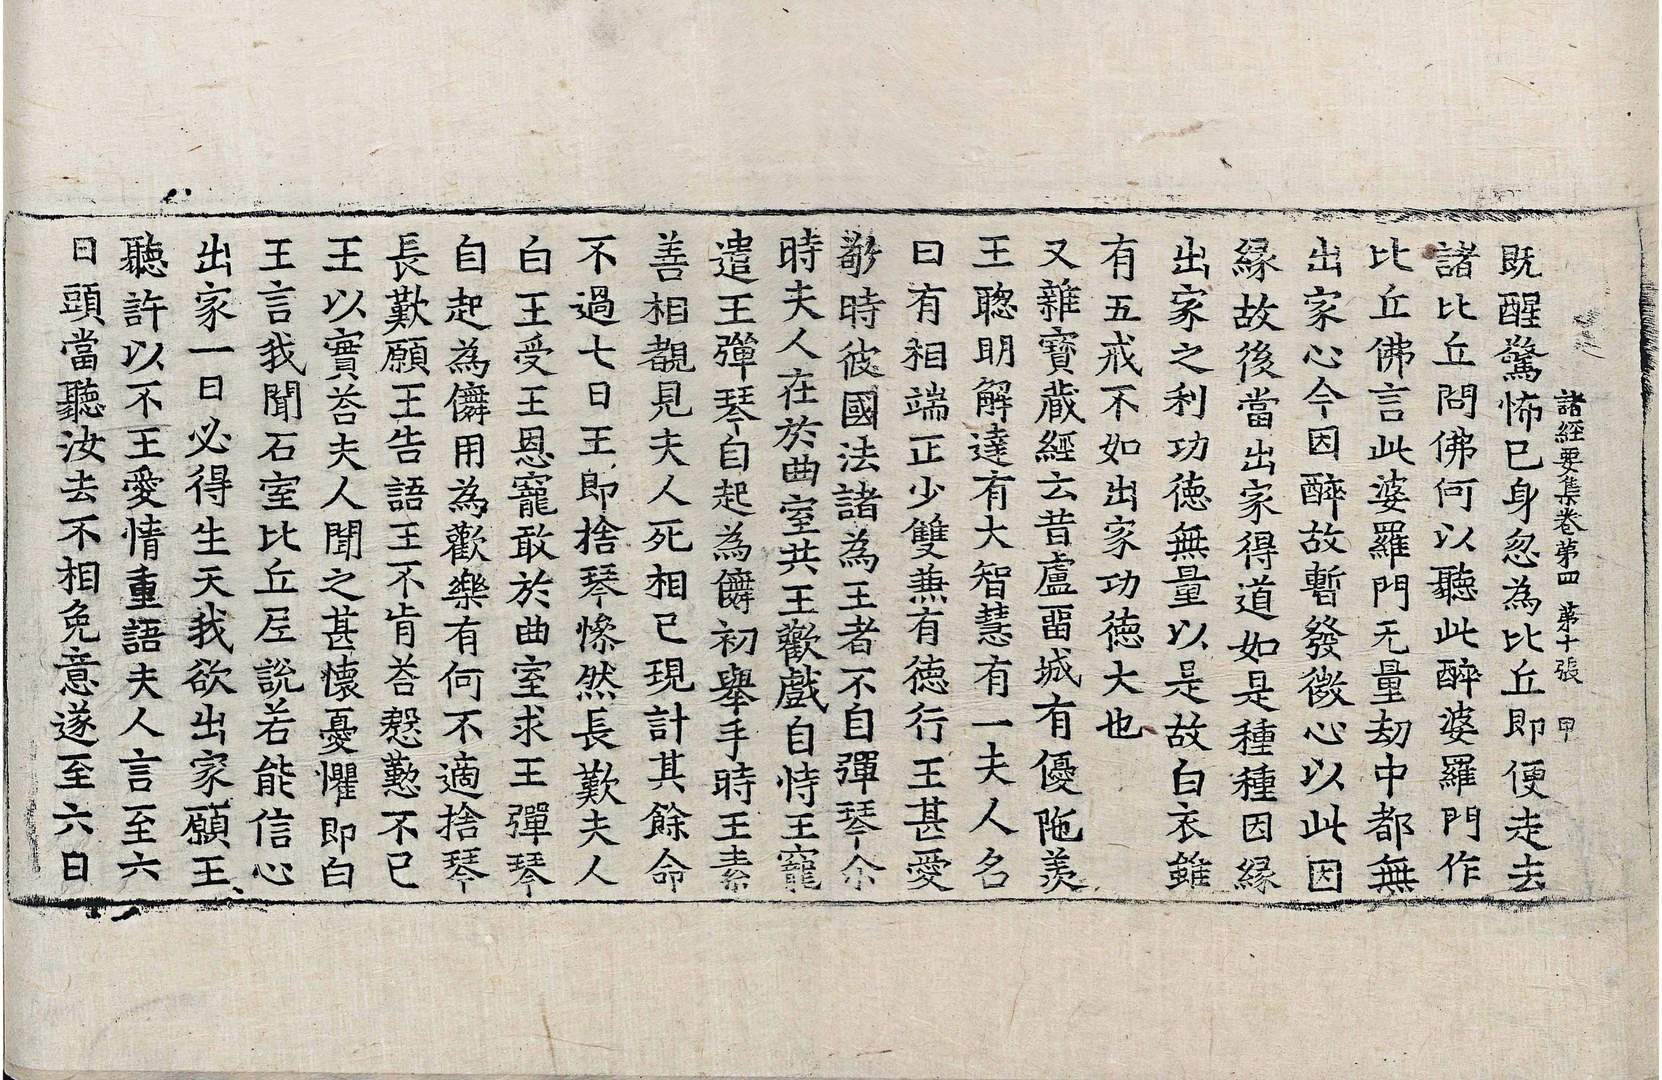 諸經要集卷第四 第十張 甲
既醒驚怖已身忽為比丘即便走去
諸比丘問佛何以聽此醉婆羅門作
比丘佛言此婆羅門无量劫中都無
出家心今因醉故暫發微心以此因
緣故後當出家得道如是種種因緣
出家之利功德無量以是故白衣雖
有五戒不如出家功德大也
又雜寶藏經云昔盧畱城有優陁羨
王聦明解達有大智慧有一夫人名
曰有相端正少雙兼有德行王甚愛
敬時彼國法諸為王者不自彈琴尒
時夫人在於曲室共王歡戲自恃王寵
遣王彈琴自起為儛初舉手時王素
善相覩見夫人死相已現計其餘命
不過七日王即捨琴慘然長歎夫人
白王受王恩寵敢於曲室求王彈琴
自起為儛用為歡樂有何不適捨琴
長歎願王告語王不肯荅慇懃不已
王以實荅夫人聞之甚懷憂懼即白
王言我聞石室比丘尼說若能信心
出家一日必得生天我欲出家願王
聽許以不王愛情重語夫人言至六
日頭當聽汝去不相免意遂至六日